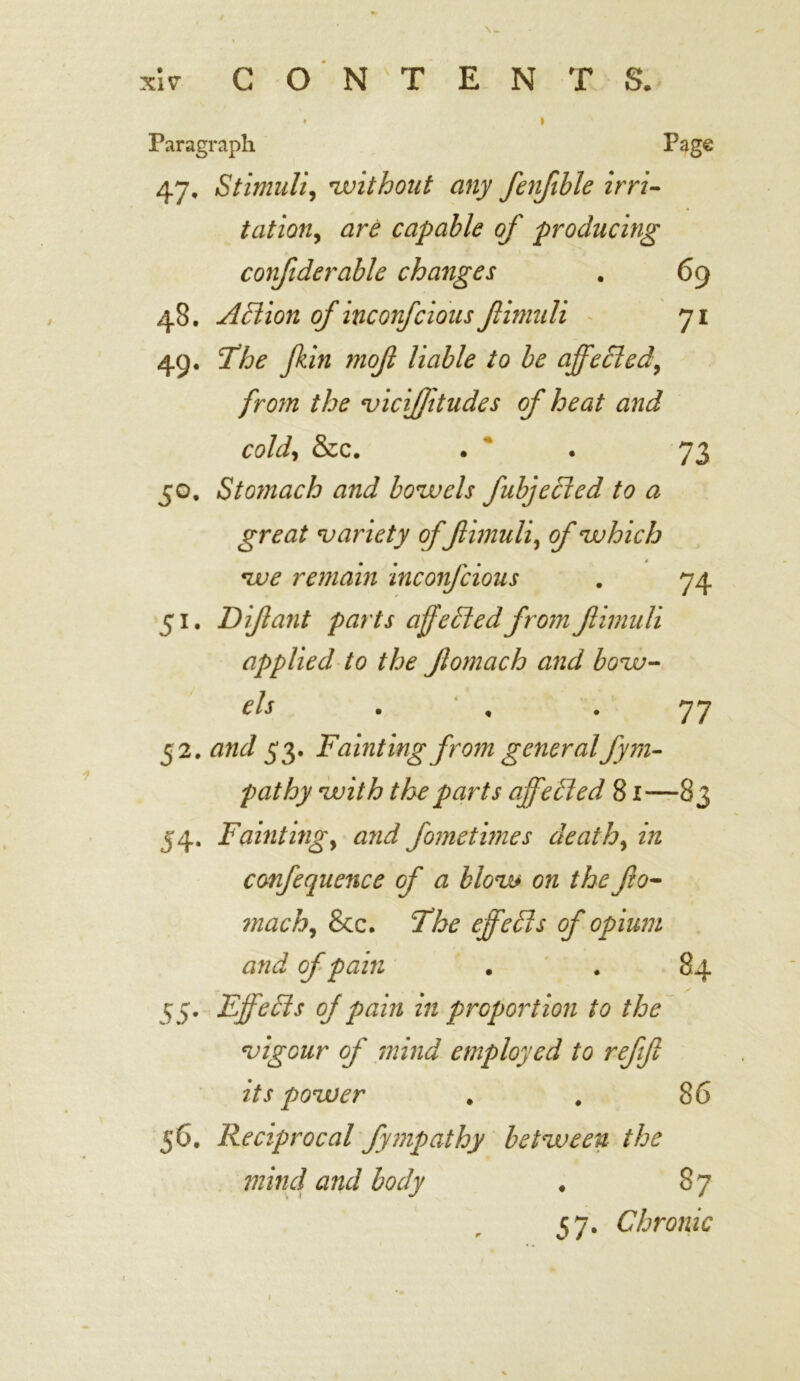 xiv CONTENTS.
Paragraph Page
47. Stimuli, without any ſenſible irri-
tation, are capable of producing
conſiderable changes . 69
48. Action of inconſcious ſtimuli 71
49. The ſkin moſt liable to be affected,
from the viciſſitudes of heat and
cold, &c. . . 73
50. Stomach and bowels ſubjected to a
great variety of ſtimuli, of which
we remain inconſcious . 74
51. Diſtant parts affected from ſtimuli
applied to the ſtomach and bow-
els . . . 77
52. and 53. Fainting from general ſym-
pathy with the parts affected 81—83
54. Fainting, and ſometimes death, in
conſequence of a blow on the ſto-
mach, &c. The effects of opium
and of pain . . 84
55. Effects of pain in proportion to the
vigour of mind employed to reſiſt
its power . . 86
56. Reciprocal ſympathy between the
mind and body . 87
57. Chronic